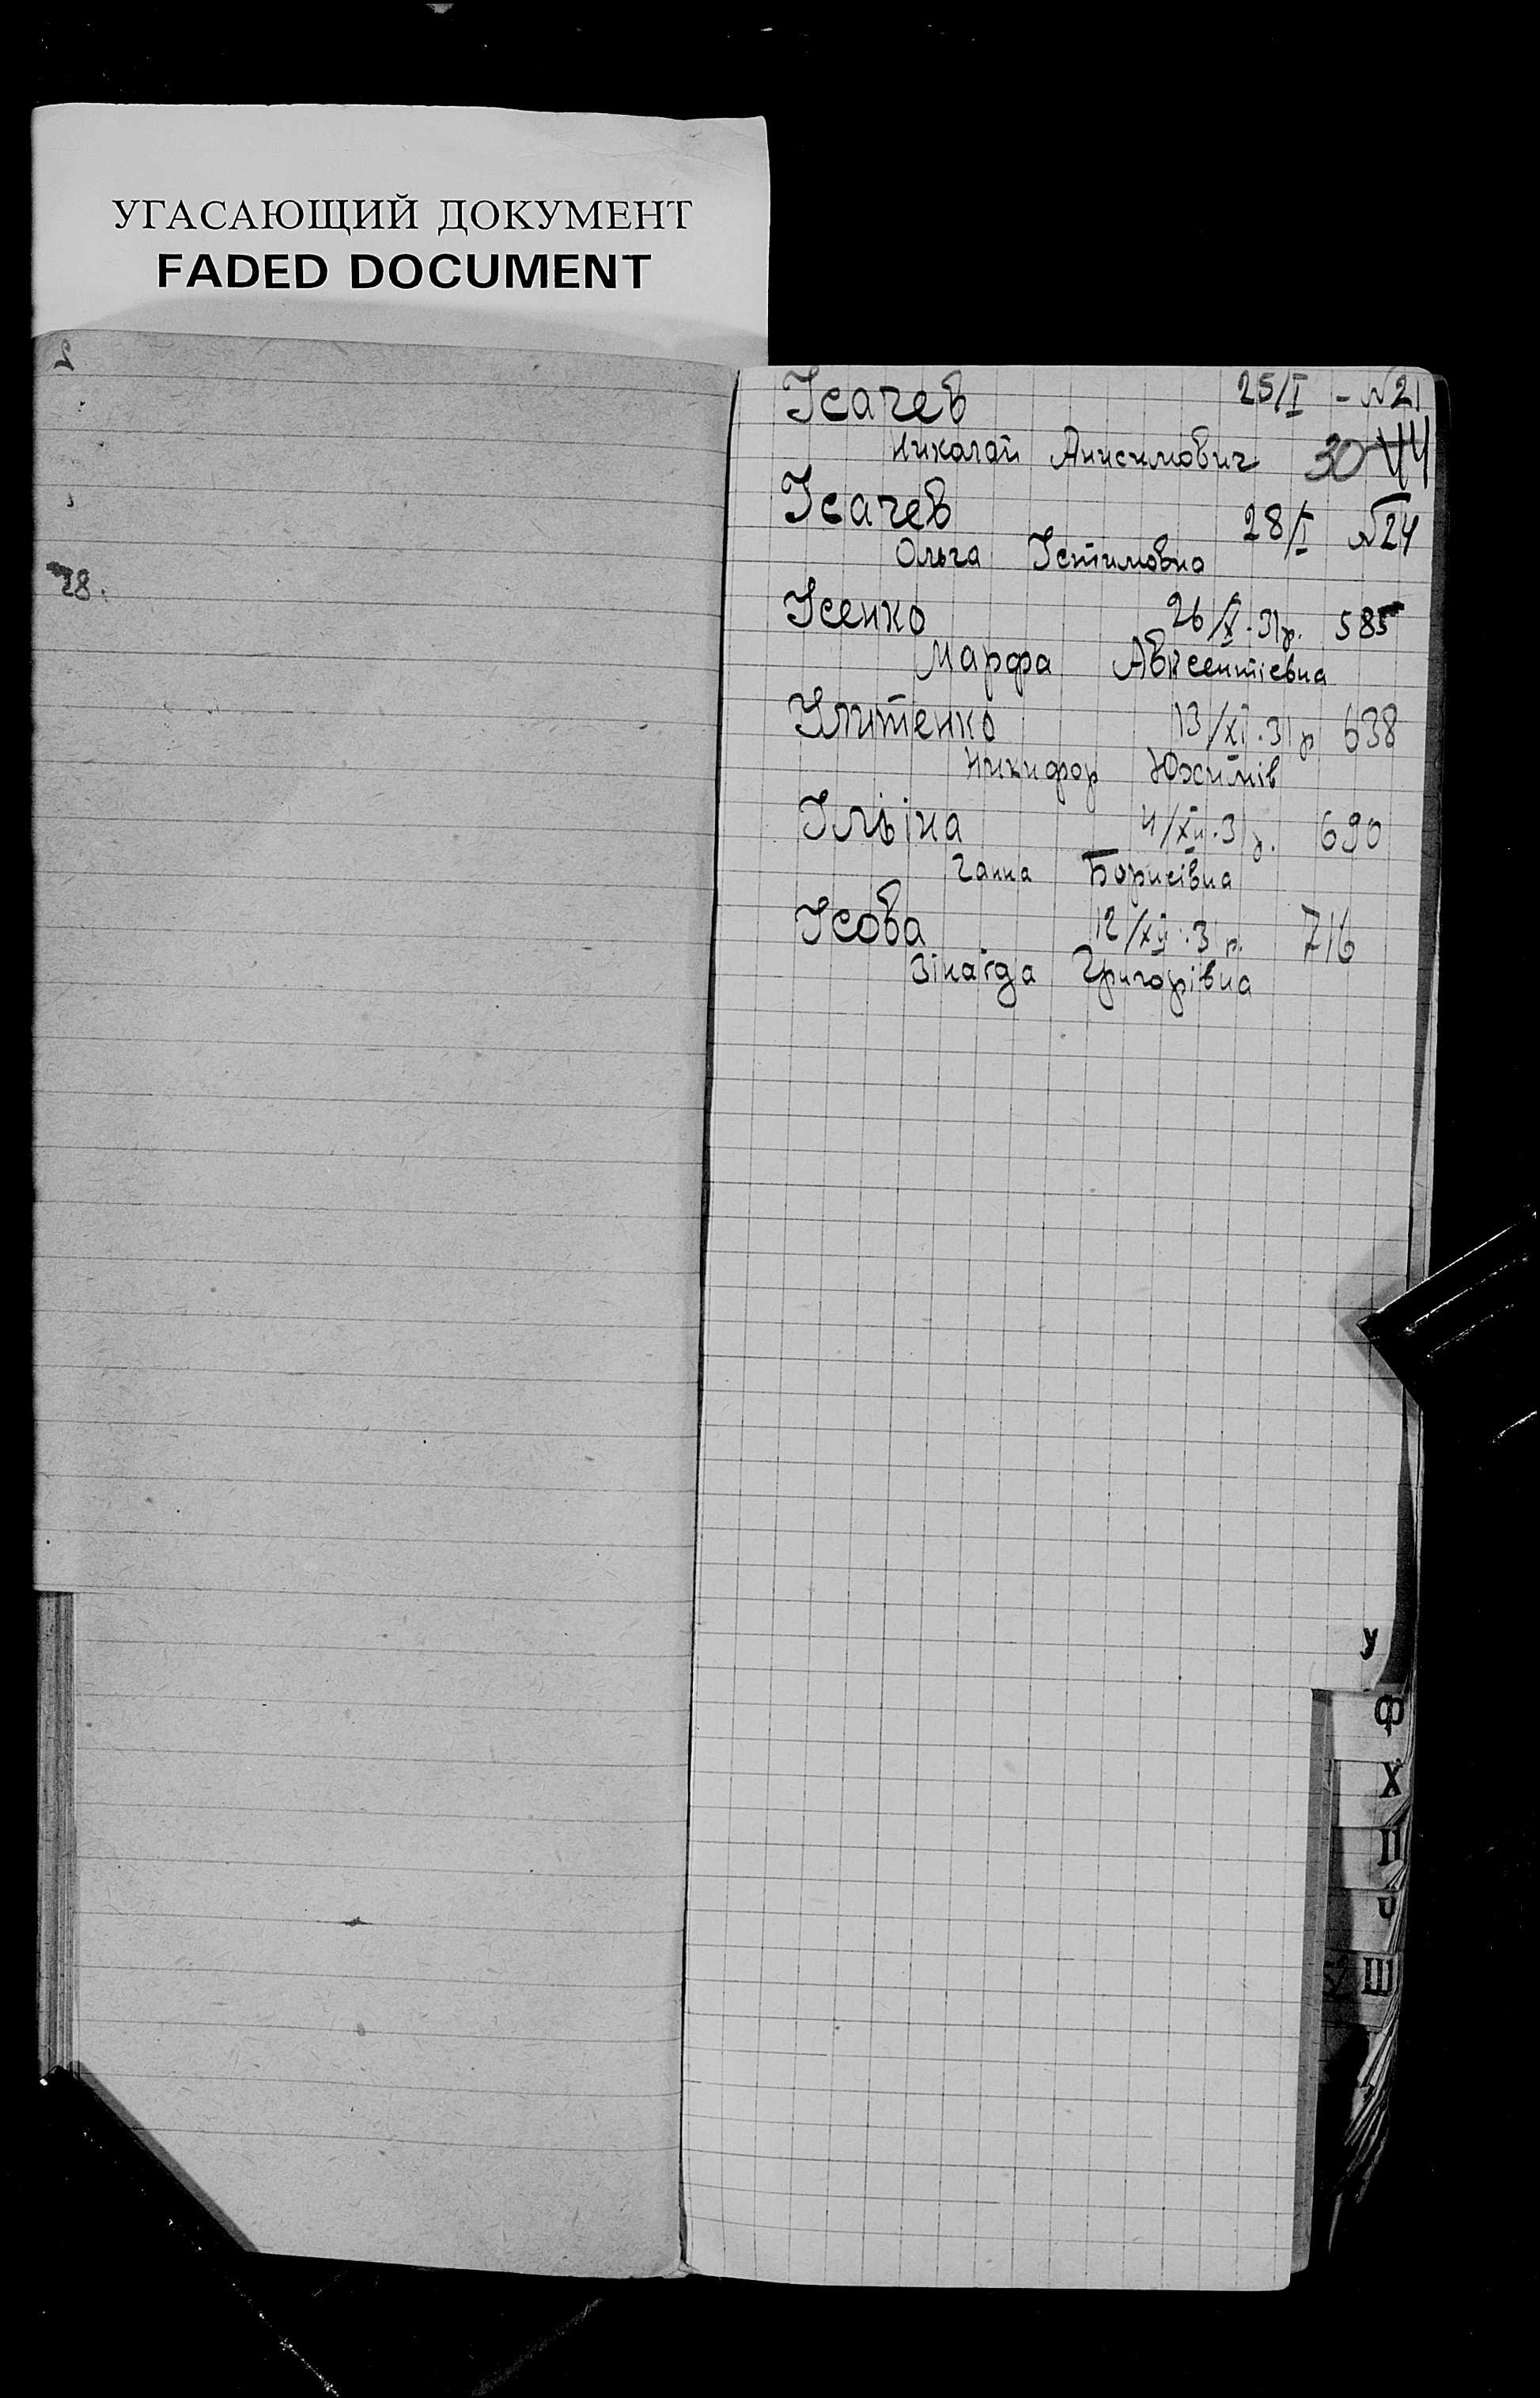 УГАСАЮЩИЙ ДОКУМЕНТ
FADED DOCUMENT
28.
Ісачев 25/I - №21
Николай Анисимович 30
Ісачев 28/I №24
Ольга Істимовна
Ісенко 26/X.31р. 585
Марфа Авксентієвна
13/XI.31р 638
Никифор Юхимів
Ільіна 4/XII.31р. 690
Ганна Борисівна
Ісова 12/XII.3 р. 716
Зінаїда Григорівна
У
Ф
Х
Ц
Ч
Ш